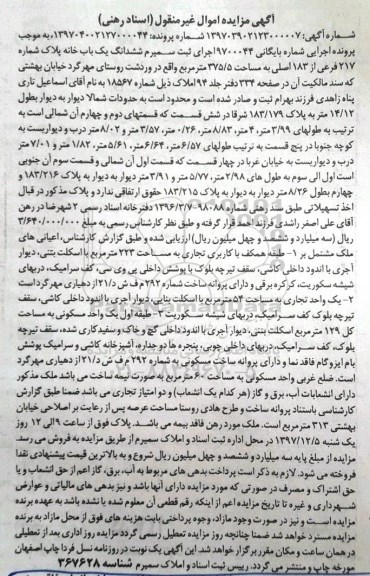 آگهی مزایده اموال غیرمنقول (اسناد رهنی)
شماره آگهی: ۱۳۹۷۰۳۹۰۲۱۲۳۰۰۰۰۰۷ شماره پرونده: ۱۳۹۷۰۴۰۰۲۱۲۷۰۰۰۰۴۴، به موجب
پرونده اجرایی شماره بایگانی ۹۷۰۰۰۴۴ اجرای ثبت سمیرم ششدانگ یک باب خانه پلاک شماره
۲۱۷ فرعی از ۱۸۳ اصلی به مساحت ۳۷۵/۵ مترمربع واقع در وردشت روستای مهرگرد خیابان بهشتی
که سند مالکیت آن در صفحه ۳۳۴ دفتر جلد ۹۴ املاک ذیل شماره ۱۸۵۶۷ به نام آقای اسماعیل تاری
پناه زاهدی فرزند بهرام ثبت و صادر شده است و محدود است به حدودات شمالا دیوار به دیوار بطول
۱۴/۱۲ متر به پلاک ۱۸۳/۱۷۹ شرقا در شش قسمت که قسمتهای دوم و چهارم آن شمالی است به
ترتیب به طولهای ۳/۹۹ متر، ۴ متر، ۸/۸۳ متر، ۰/۲۶ متر، ۳/۵۷ متر و ۸/۰۲ متر درب و دیواریست به
کوچه جنوبا در پنج قسمت به ترتیب طولهای ۶/۵۷ متر، ۶/۶۴ متر، ۵/۶۱ متر، ۱/۸۲ متر و ۷/۰۱ متر
درب و دیواریست به خیابان غربا در چهار قسمت که قسمت اول آن شمالی و قسمت سوم آن جنوبی
است اول الی سوم به طول های ۲/۹۸ متر، ۵/۷۷ متر و ۳/۹۱ متر دیوار به دیوار به پلاک ۱۸۳/۲۱۶ و
چهارم بطول ۸/۲۶ متر دیوار به دیوار به پلاک ۱۸۳/۲۱۵ حقوق ارتفاقی ندارد و پلاک مذکور در قبال
اخذ تسهیلاتی طبق سند رهنی شماره ۹۸۰۸۸-۱۳۹۶/۳/۷ دفترخانه اسناد رسمی ۲ شهرضا در رهن
آقای علی اصغر راشدی فرزند احمد قرار گرفته و طبق نظر کارشناس رسمی به مبلغ ۳/۶۴۰/۰۰۰/۰۰۰
ریال (سه میلیارد و ششصد و چهل میلیون ریال) ارزیابی شده و طبق گزارش کارشناس، اعیانی های
ملک مشتمل بر ۱- طبقه همکف با کاربری تجاری به مساحت ۲۲۳ مترمربع با اسکلت بتنی، دیوار
آجری با اندود داخلی کاشی، سقف تیرچه بلوک با پوشش داخلی پی وی سی، کف سرامیک، دربهای
شیشه سکوریت، کرکره برقی و دارای پروانه ساخت شماره ۲۹۲ م ف ش ن/۲۱ از دهیاری مهرگرد است
۲- یک واحد تجاری به مساحت ۵۴ مترمربع با اسکلت بنایی، دیوار آجری با اندود داخلی کاشی، سقف
تیرچه بلوک کف سرامیک، دربهای شیشه سکوریت ۳- طبقه اول یک واحد مسکونی به مساحت
کل ۱۲۹ مترمربع اسکلت بتنی، دیوار آجری با اندود داخلی گچ و خاک و سفیدکاری شده، سقف تیرچه
بلوک، کف سرامیک، دربهای داخلی چوبی، پنجره ها دو جداره، آشپزخانه کاشی و سرامیک پوشش
بام ایزوگام فاقد نما و دارای پروانه ساخت مسکونی به شماره ۲۹۲ م ف ش ن/۲۱ از دهیاری مهرگرد
است. ضلع غربی واحد مسکونی به مساحت ۶۰ مترمربع به صورت نیمه ساخت می باشد ملک مذکور
دارای انشعابات آب، برق و گاز (هر کدام یک انشعاب) و دو امتیاز تجاری می باشد ضمنا طبق گزارش
کارشناسی باستناد پروانه ساخت و طرح هادی روستا مساحت عرصه پس از رعایت بر اصلاحی خیابان
بهشتی ۳۱۳ مترمربع است. ملک مورد رهن فاقد بیمه می باشد. پلاک فوق از ساعت ۹ الی ۱۲ روز
یک شنبه ۱۳۹۷/۱۲/۵ در محل اداره ثبت اسناد و املاک سمیرم از طریق مزایده به فروش می رسد.
مزایده از مبلغ پایه سه میلیارد و ششصد و چهل میلیون ریال شروع و به بالاترین قیمت پیشنهادی نقدا
فروخته می شود. لازم به ذکر است پرداخت بدهی های مربوط به آب، برق، گاز اعم از حق انشعاب و یا
حق اشتراک و مصرف در صورتی که مورد مزایده دارای آنها باشد و نیز بدهی های مالیاتی و عوارض
شهرداری و غیره تا تاریخ مزایده اعم از اینکه رقم قطعی آن معلوم شده یا نشده باشد به عهده برنده
مزایده است و نیز در صورت وجود مازاد، وجوه پرداختی بابت هزینه های فوق از محل مازاد به برنده
مزایده مسترد خواهد شد ضمنا چنانچه روز مزایده تعطیل رسمی گردد مزایده روز اداری بعد از تعطیلی
در همان ساعت و مکان مقرر برگزار خواهد شد. این آگهی یک نوبت در روزنامه نسل فردا چاپ اصفهان
مورخه چاپ و منتشر می گردد. رییس ثبت اسناد و املاک سمیرم شناسه ۳۶۷۶۲۸